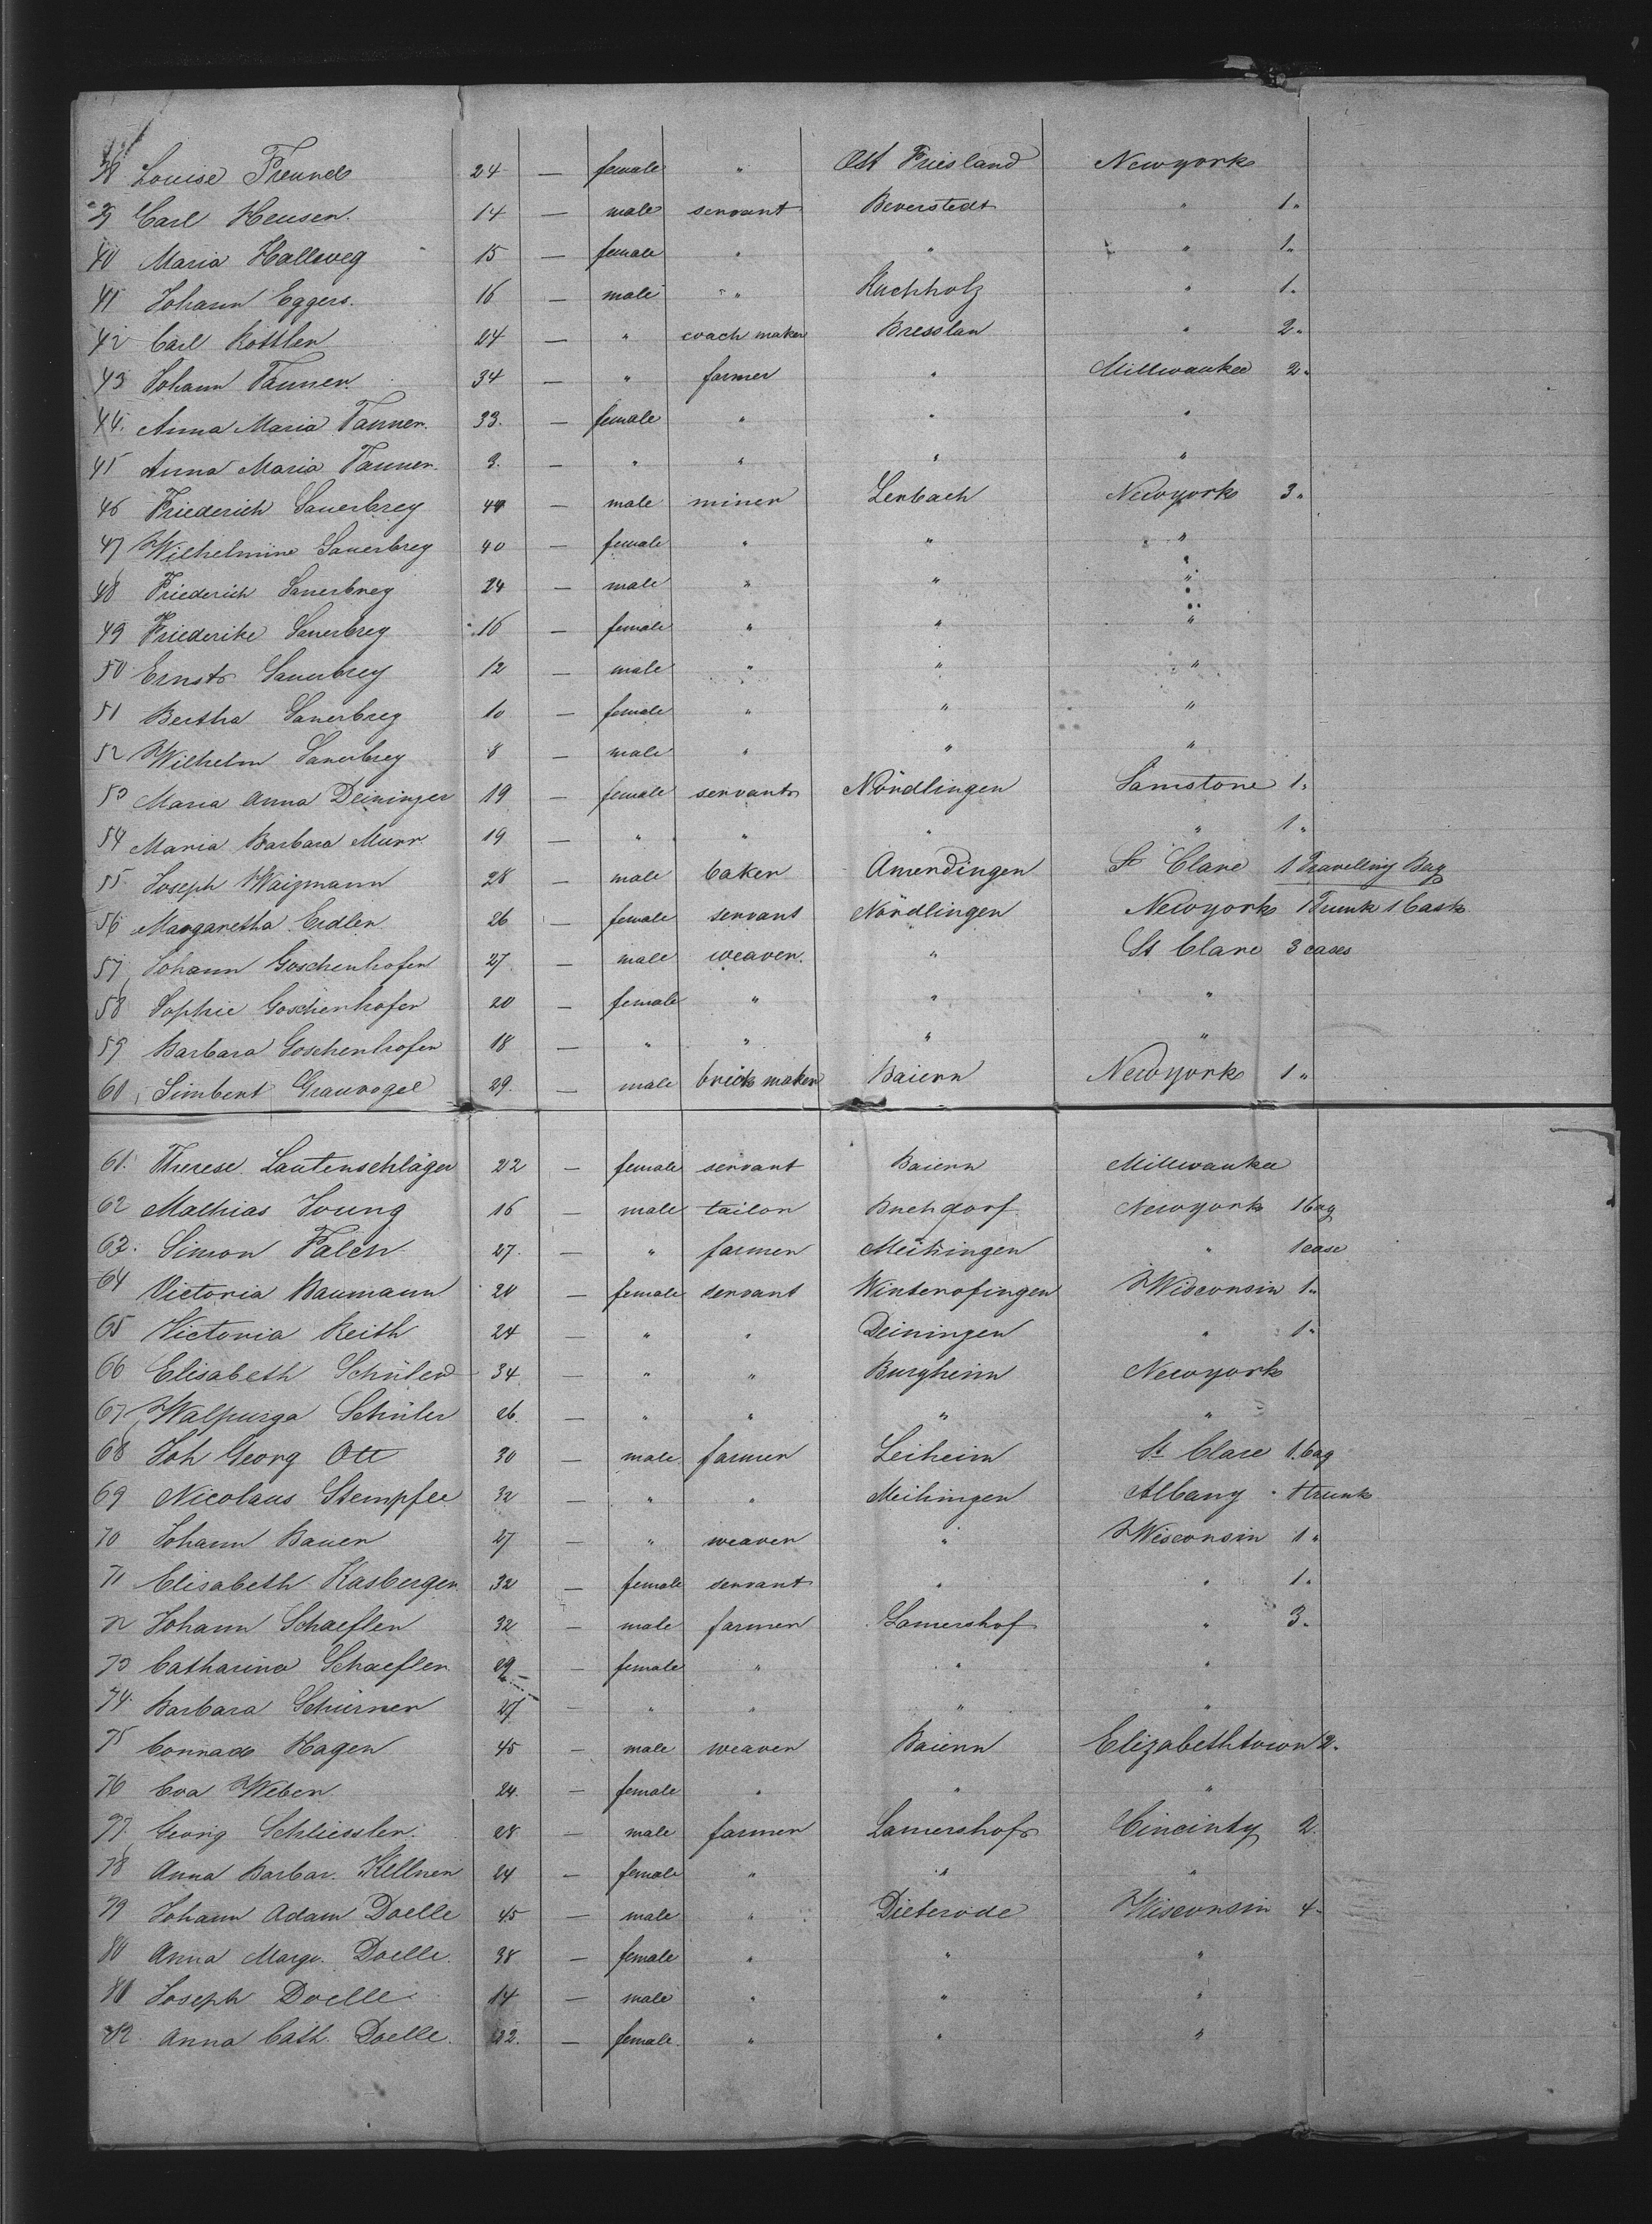 38 Louise Freund 24 — female " Ost Friesland Newyork
39 Carl Heusen. 14 — male servant Beverstedt " 1 "
40 Maria Hallweg 15 — female " " " 1 "
41 Johann Eggers. 16 — male " Buchholz " 1 "
42 Carl Kottler 24 — " coach maker Bresslau " 2 "
43 Johann Tanner 34 — " farmer " Millwaukee 2 "
44. Anna Maria Tanner. 33. — female " " "
45 Anna Maria Tanner. 3. — " " " "
46 Friederich Sauerbrey 44 — male miner Lerbach Newyork 3 "
47 Wilhelmine Sauerbrey 40 — female " " "
48 Friederich Sauerbrey 24 — male " " "
49 Friederike Sauerbrey 16 — female " " "
50 Ernst Sauerbrey 12 — male " " "
51 Bertha Sauerbrey 10 — female " " "
52 Wilhelm Sauerbrey 8 — male " " "
53 Maria Anna Deininger 19 — female servant Nördlingen Samstone 1 "
54 Maria Barbara Murr 19 — " " " " 1 "
55 Joseph Waizmann 28 — male baker Amerdingen St Clare 1 Travelling Bag
56 Margaretha Eidler 26 — female servant Nördlingen Newyork 1 Trunk 1 Cask
57 Johann Goschenhofer 27. — male weaver. " St Clare 3 cases
58 Sophie Goschenhofer 20 — female " " "
59 Barbara Goschenhofer 18 — " " " "
60 Simbert Grauvogel 29. — male brick maker Baiern Newyork 1 "
61. Therese Lautenschläger 22 — female servant Baiern Millwaukee
62 Mathias Joung 16 — male tailor Buchdorf Newyork 1 bag
62. Simon Falch 27. — " farmer Meihingen " 1 case
64 Victoria Baumann 20 — female servant Winterofingen Wisconsin 1 "
65 Victoria Keith 24 — " " Deiningen " 1 "
66 Elisabeth Schüler 34 — " " Burgheim Newyork
67 Walpurga Schüler 26. — " " " "
68 Joh Georg Ott 30 — male farmer Leiheim St Clare 1 bag
69 Nicolaus Stempfle 32 — " " Meihingen Albany 1 trunk
70 Johann Bauer 27 — " weaver " Wisconsin 1 "
71 Elisabeth Kasberger 32 — female servant " " 1 "
72 Johann Schaefler 32 — male farmer Lamershof " 3 "
73 Catharina Schaefler 29 — female " " "
74. Barbara Schürner 27 — " " " "
75 Connrad Hagen 45 — male weaver Baiern Elizabethtown 2 "
76 Eva Weber 24. — female " " "
77 Georg Schliessler. 28 — male farmer Lamershof Cincinty 2
78 Anna Barbar. Kellner 24 — female " " "
79 Johann Adam Doelle 45 — male " Dieterode Wisconsin 4 "
80 Anna Margr. Doelle. 38 — female " " "
81 Joseph Doelle 14 — male " " "
82. Anna Cath. Doelle. 22. — female. " " "